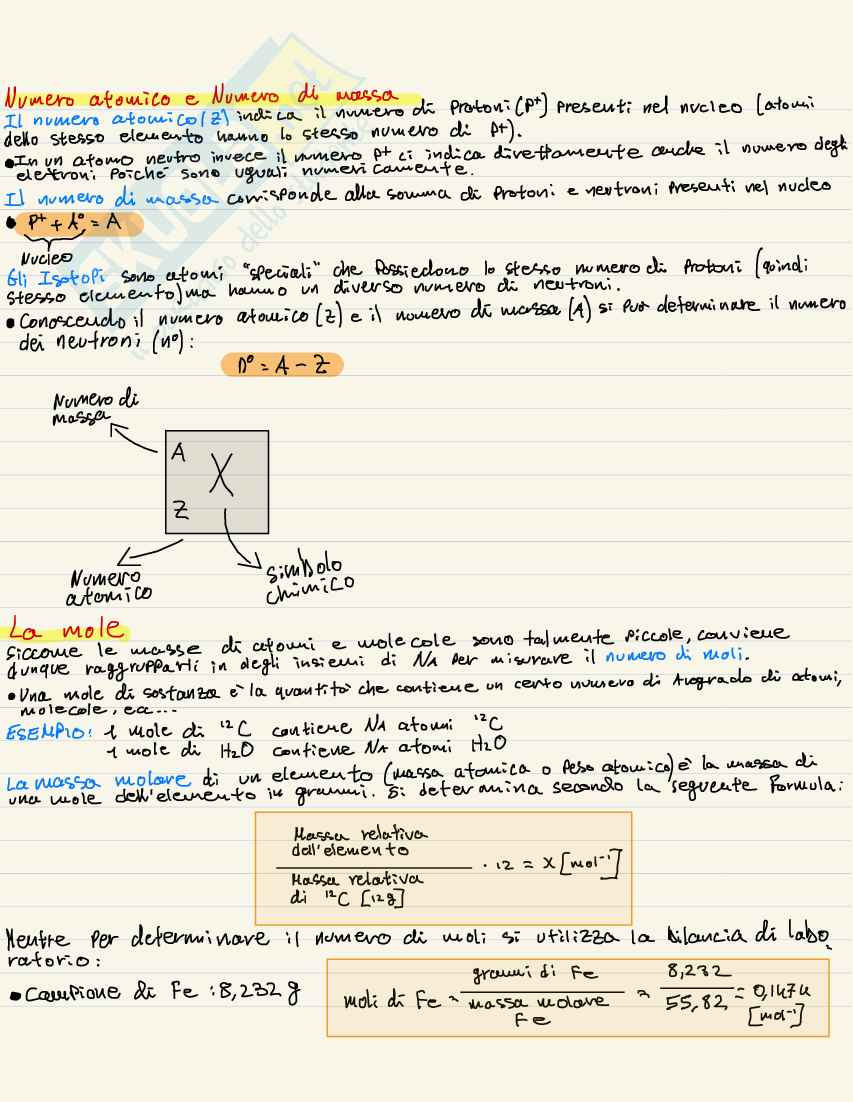 Numero atomico e Numero di massa
Il numero atomico (Z) indica il numero di Protoni (P⁺) Presenti nel nucleo (atomi
dello stesso elemento hanno lo stesso numero di P⁺).
• In un atomo neutro invece il numero P⁺ ci indica direttamente anche il numero degli
elettroni Poiché sono uguali numericamente.
Il numero di massa corrisponde alla somma di Protoni e neutroni Presenti nel nucleo
• P⁺ + n⁰ = A
Nucleo
Gli Isotopi sono atomi "speciali" che Possiedono lo stesso numero di Protoni (quindi
stesso elemento) ma hanno un diverso numero di neutroni.
• Conoscendo il numero atomico (Z) e il numero di massa (A) si Può determinare il numero
dei neutroni (n⁰):
n⁰ = A - Z
Numero di
massa
A
X
Z
Numero
atomico
simbolo
chimico
La mole
Siccome le masse di atomi e molecole sono talmente Piccole, conviene
dunque raggrupparli in degli insiemi di NA Per misurare il numero di moli.
• Una mole di sostanza è la quantità che contiene un certo numero di Avogrado di atomi,
molecole, ea...
ESEMPIO: 1 mole di ¹²C contiene NA atomi ¹²C
1 mole di H₂O contiene NA atomi H₂O
La massa molare di un elemento (massa atomica o Peso atomico) è la massa di
una mole dell'elemento in grammi. Si determina secondo la seguente Formula:
Massa relativa
dell'elemento
Massa relativa
di ¹²C [12g]
· 12 = X [mol⁻¹]
Mentre Per determinare il numero di moli si utilizza la bilancia di labo
ratorio:
• Campione di Fe : 8,232 g
moli di Fe = grammi di Fe / massa molare Fe = 8,232 / 55,82 = 0,1474
[mol⁻¹]